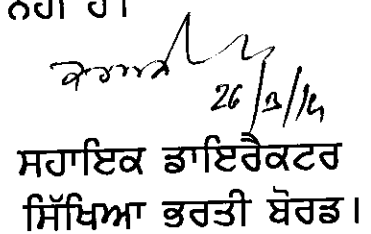 ਨਹੀਂ ਹੈ।
26/3/14
ਸਹਾਇਕ ਡਾਇਰੈਕਟਰ
ਸਿੱਖਿਆ ਭਰਤੀ ਬੋਰਡ।